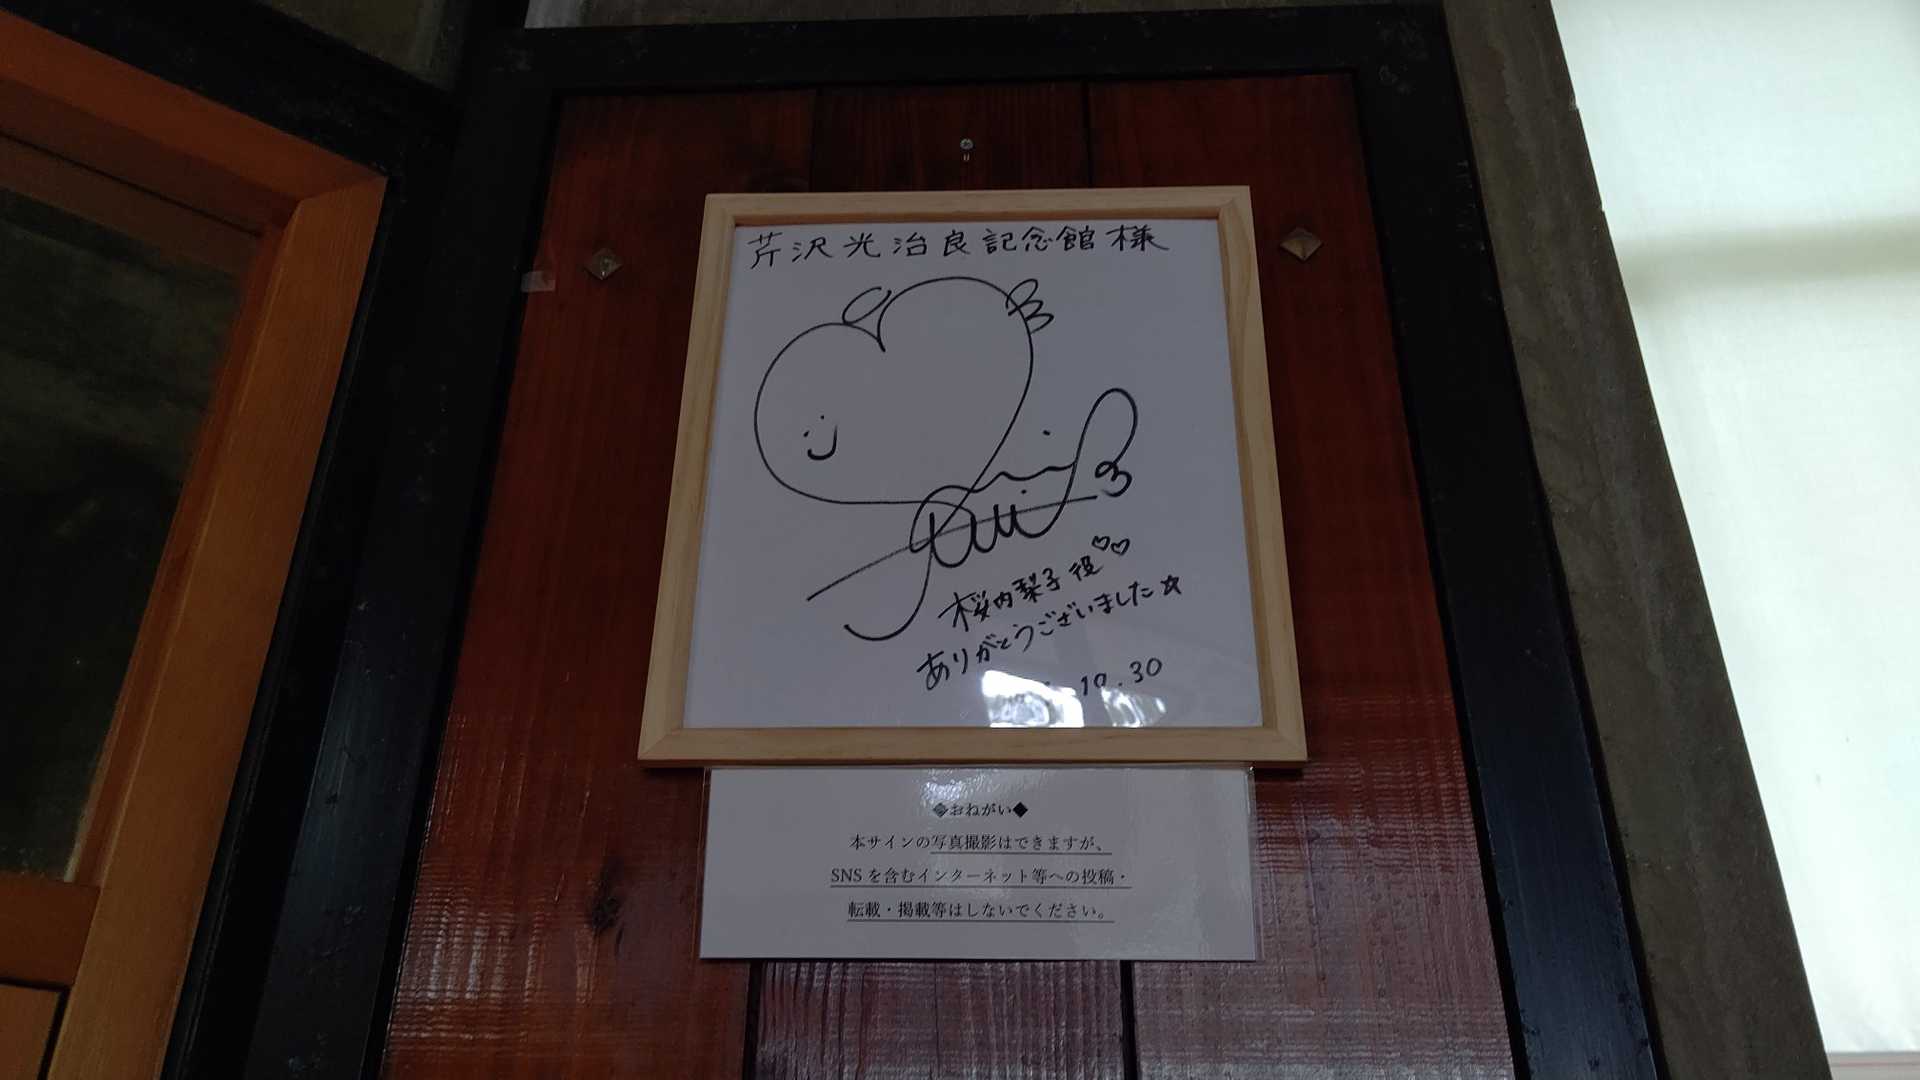 芹沢光治良記念館様
桜内梨子役♡♡
ありがとうございました☆
10.30
◆おねがい◆
本サインの写真撮影はできますが、
SNSを含むインターネット等への投稿・
転載・掲載等はしないでください。